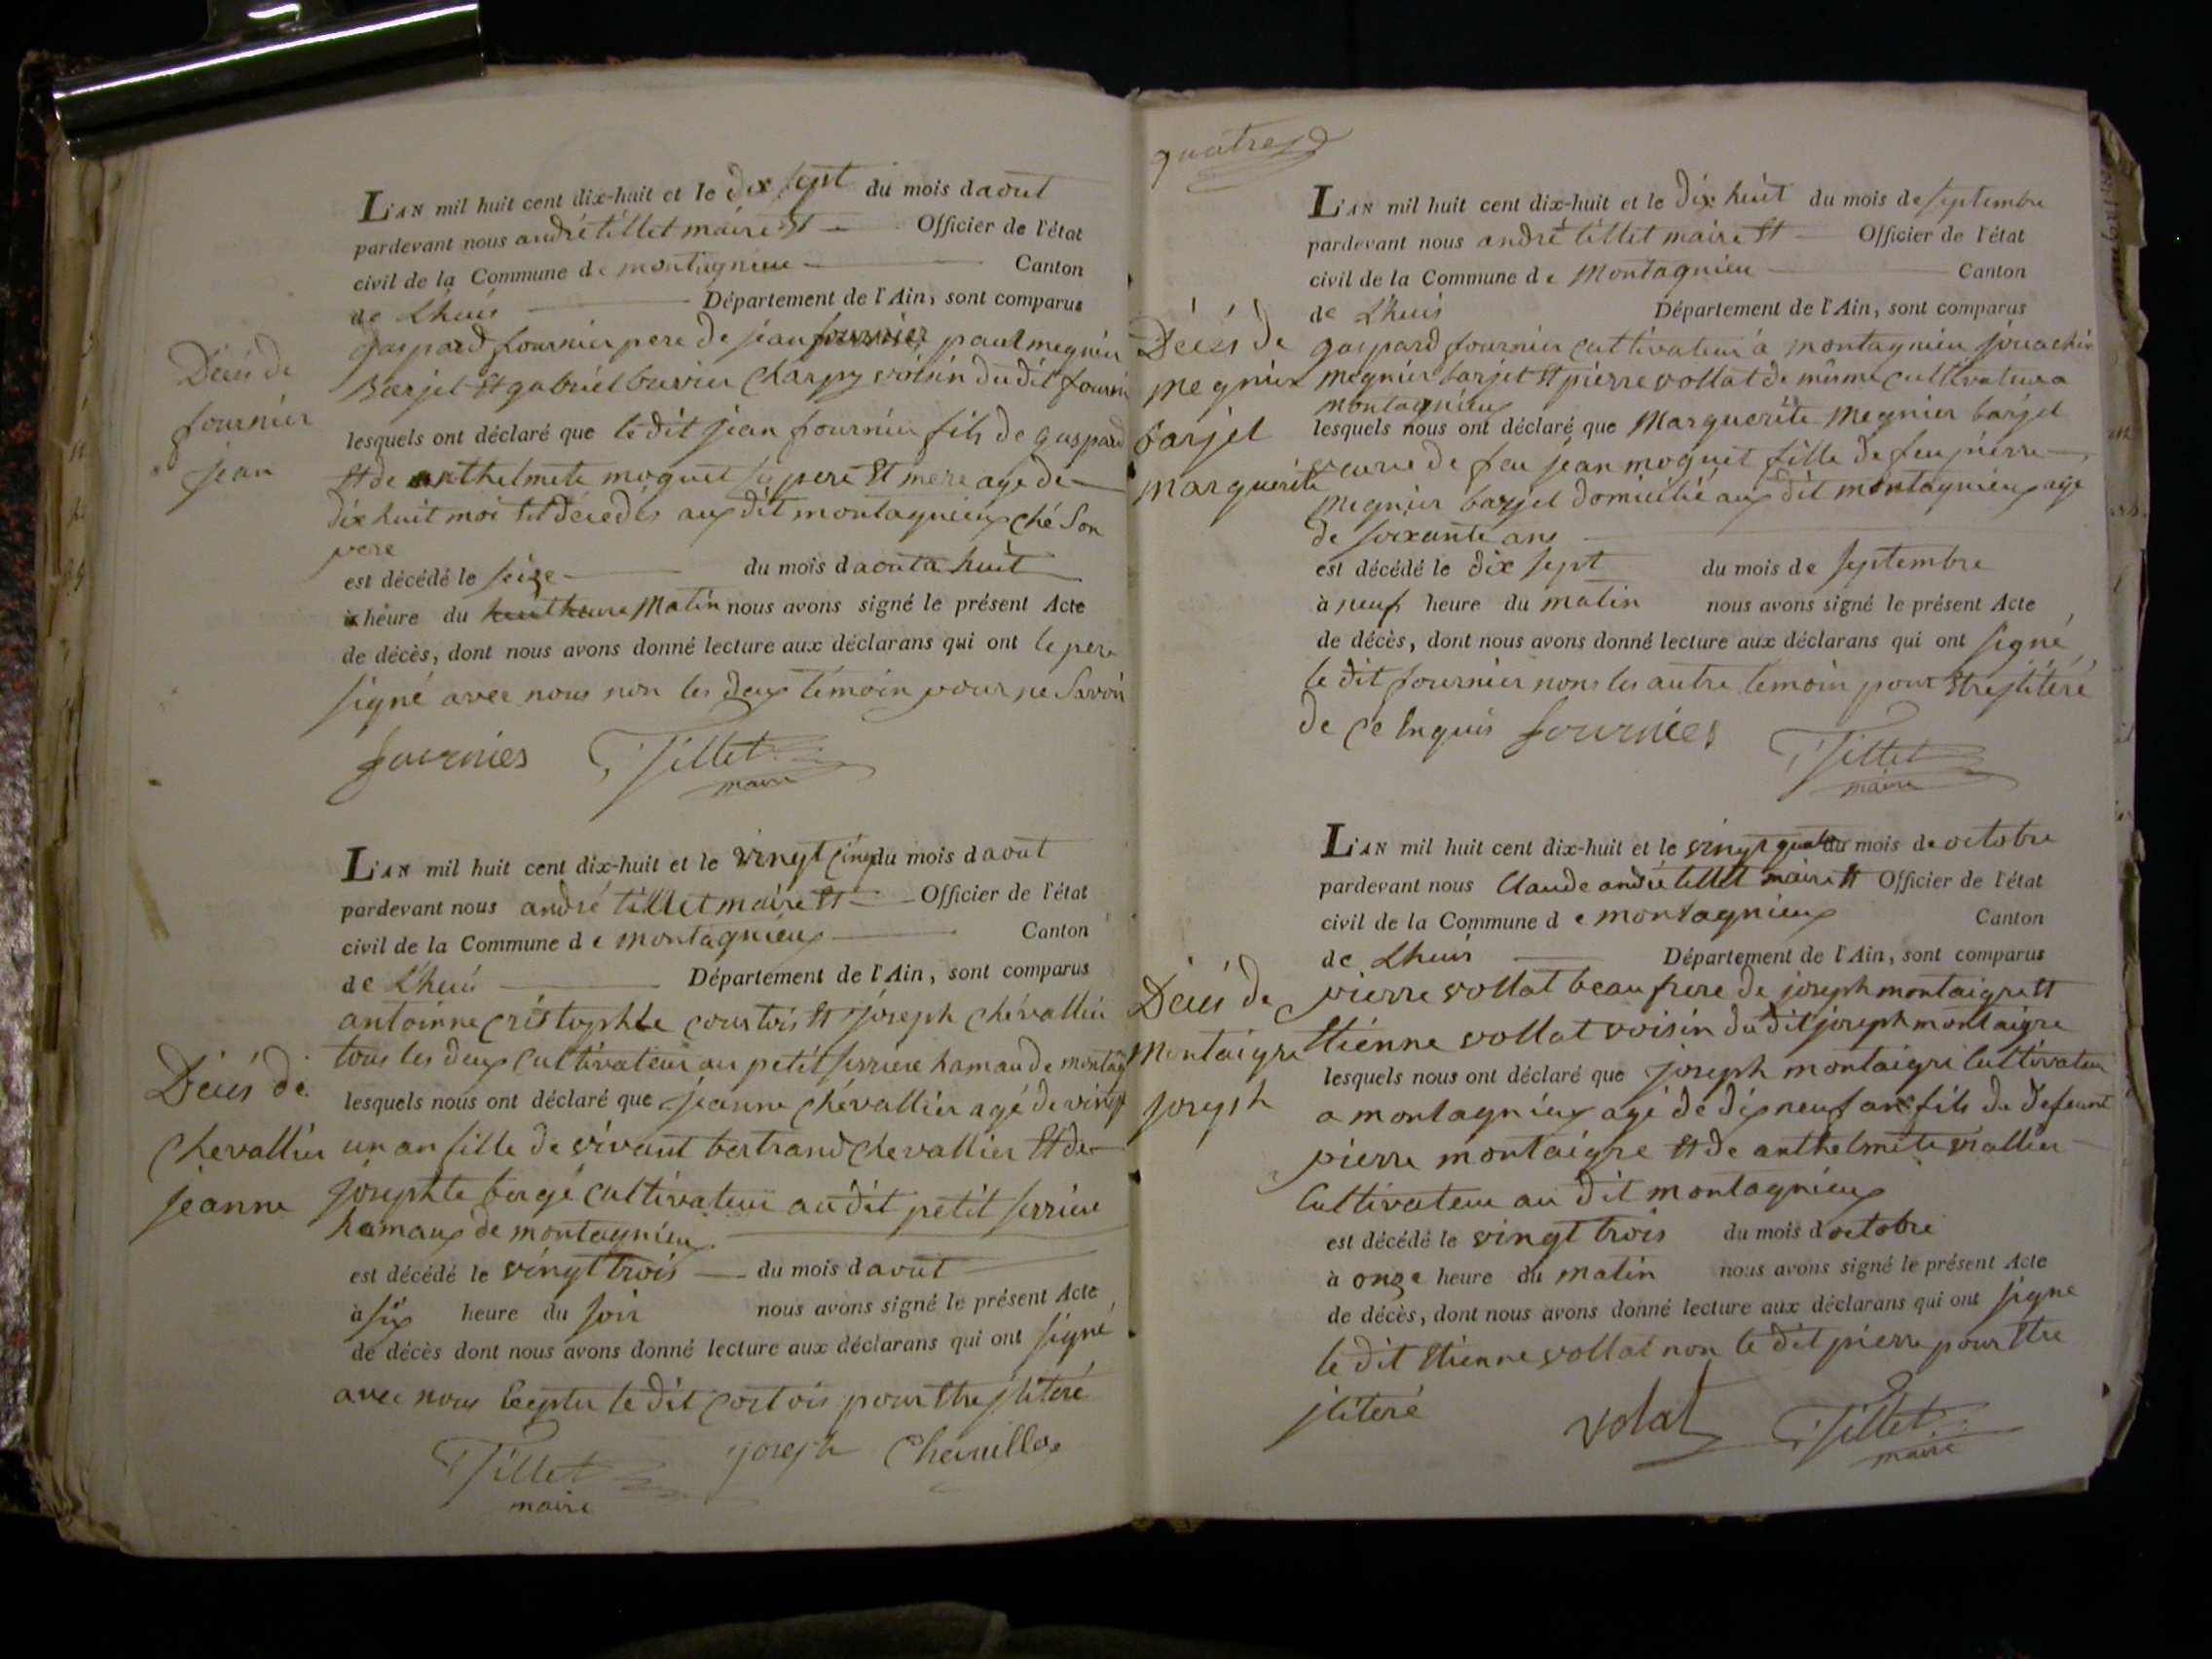 L'AN mil huit cent dix-huit et le dix sept du mois daout
pardevant nous andré tillet maire Et Officier de l'état
civil de la Commune de montagnieu Canton
de Lhuis Département de l'Ain, sont comparus
gaspard fournier pere de jean fournier paul megnier
Barjel Et gabriel buvier charpy voisin du dit fourni
Décés de
fournier
jean
lesquels ont déclaré que le dit jean fournier fils de gaspard
Et de anthelmete moquet ses pere Et mere agé de
dix huit moi Et décédés aux dit montagnieux ché Son
pere
est décédé le seize du mois daout a huit
à heure du huit heure Matin nous avons signé le présent Acte
de décès, dont nous avons donné lecture aux déclarans qui ont le pere
signé avec nous non les deux témoin pour ne Savoir
fournier Tillet
maire
L'AN mil huit cent dix-huit et le vingt cinq du mois daout
pardevant nous andré tillet maire Et Officier de l'état
civil de la Commune de montagnieux Canton
de Lhuis Département de l'Ain, sont comparus
antoinne cristophle courtois Et joseph chevallier
tous les deux cultivateur au petit serriere hamau de montag
Décés de
Chevallier
jeanne
lesquels nous ont déclaré que jeanne chevallier agé de vingt
un an fille de vivant bertrand chevallier Et de
josephte bergé cultivateur au dit petit serriere
hamaux de montagnieux
est décédé le vingt trois du mois daout
à six heure du soir nous avons signé le présent Acte
de décès dont nous avons donné lecture aux déclarans qui ont signé
avec nous Eepter le dit cortois pour Etre jlitéré
Tillet joseph
maire
quatre
L'AN mil huit cent dix-huit et le dix huit du mois de septembre
pardevant nous andré tillet maire Et Officier de l'état
civil de la Commune de Montagnieu Canton
de Lhuis Département de l'Ain, sont comparus
Décés de
megnier
barjel
marguerite
gaspard fournier cultivateur a montagnieu
megnier barjet Et pierre vollat de même cultivateur a
montagnieux
lesquels nous ont déclaré que Marguerite Megnier barjel
veuve de feu jean moquet fille de feu pierre
megnier barjel domicilié aux dit montagnieux agé
de soixante ans
est décédé le dix sept du mois de septembre
à neuf heure du matin nous avons signé le présent Acte
de décès, dont nous avons donné lecture aux déclarans qui ont signé
le dit fournier nons les autre temoin pour Etre jlitéré
de ce Enquis fournier
Tillet
maire
L'AN mil huit cent dix-huit et le vingt quatre du mois de octobre
pardevant nous Claude andré tillet maire Et Officier de l'état
civil de la Commune de montagnieux Canton
de Lhuis Département de l'Ain, sont comparus
Décés de
Montaigre
joseph
pierre vollat beau frere de joseph montaigre Et
Etienne vollat voisin du dit joseph montaigre
lesquels nous ont déclaré que joseph montaigre Cultivateur
a montagnieux agé de dix neuf ans fils de defeunt
pierre montaigre Et de anthelmete viallier
Cultivateur au dit montagnieux
est décédé le vingt trois du mois doctobre
à onze heure du matin nous avons signé le présent Acte
de décès, dont nous avons donné lecture aux déclarans qui ont signé
le dit Etienne vollat non le dit pierre pour Etre
jlitéré
volat Tillet
maire